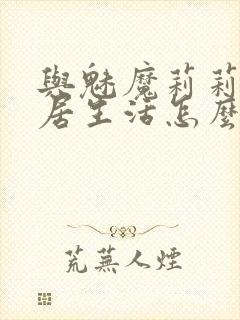 與魅魔莉莉
居生活怎麼
荒蕪人煙